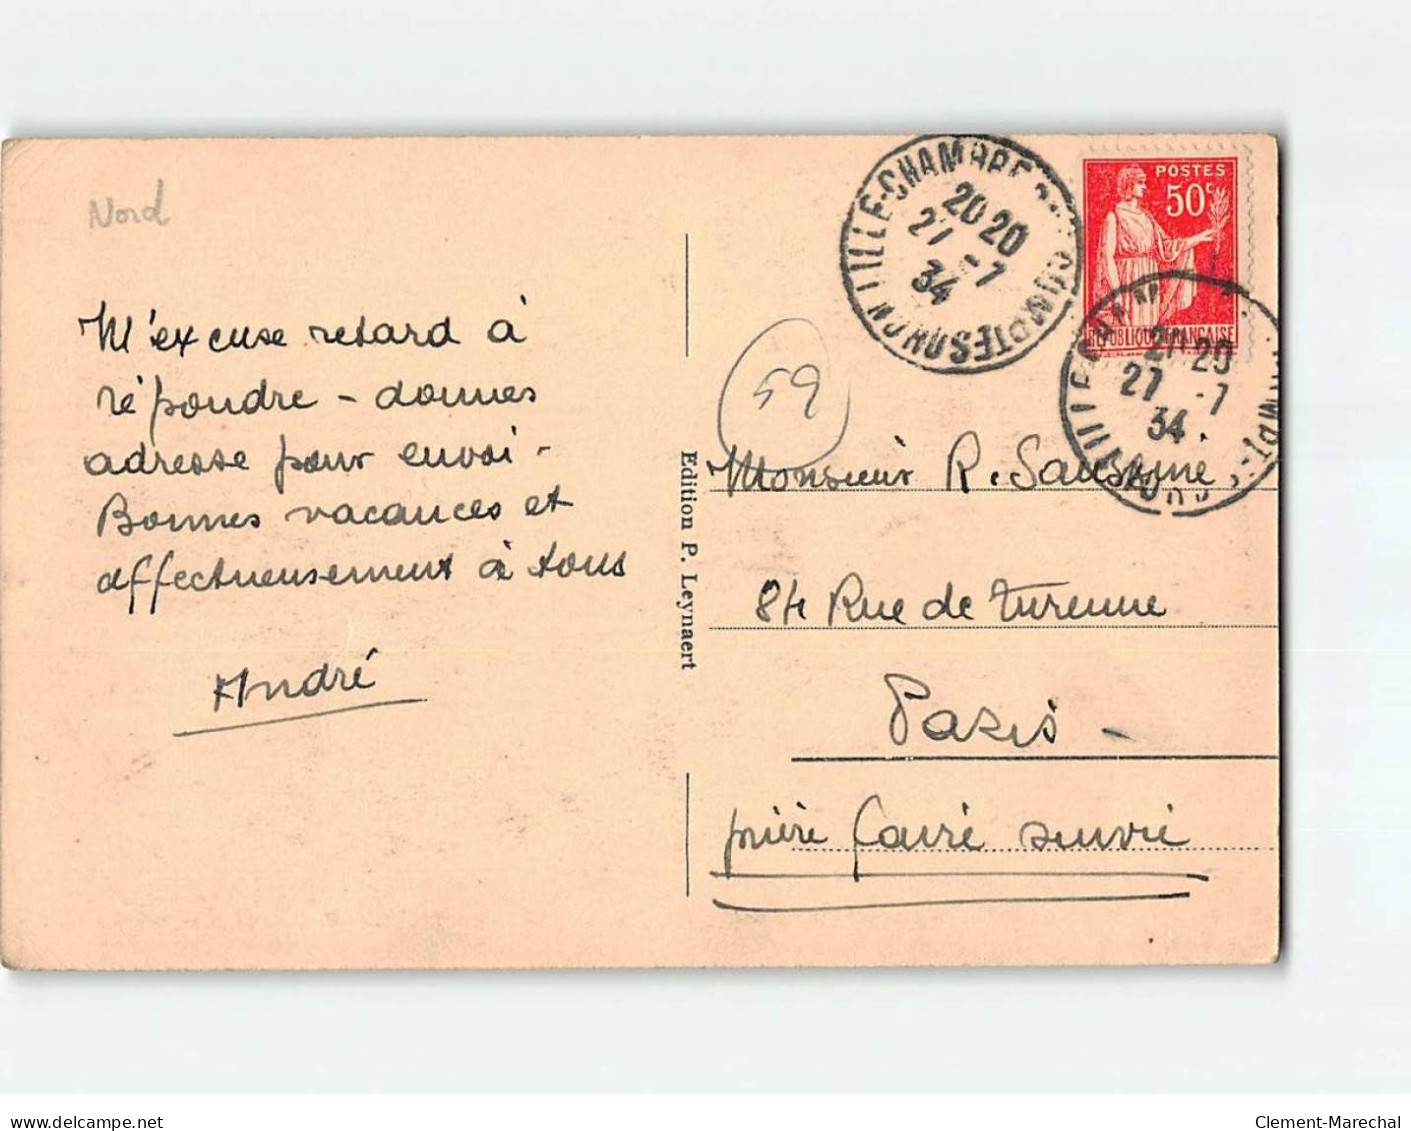 Nord
M'excuse retard à
répondre - donnes
adresse pour envoi -
Bonnes vacances et
affectueusement à tous
André
Edition P. Leynaert
59
LILLE-CHAMBRE
20 20
27 -7
34
NORD
POSTES
50c
REPUBLIQUE FRANÇAISE
20 20
27 -7
34
Monsieur R.
84 Rue de Turenne
Paris -
prière faire suivre
www.delcampe.net
Clement-Marechal